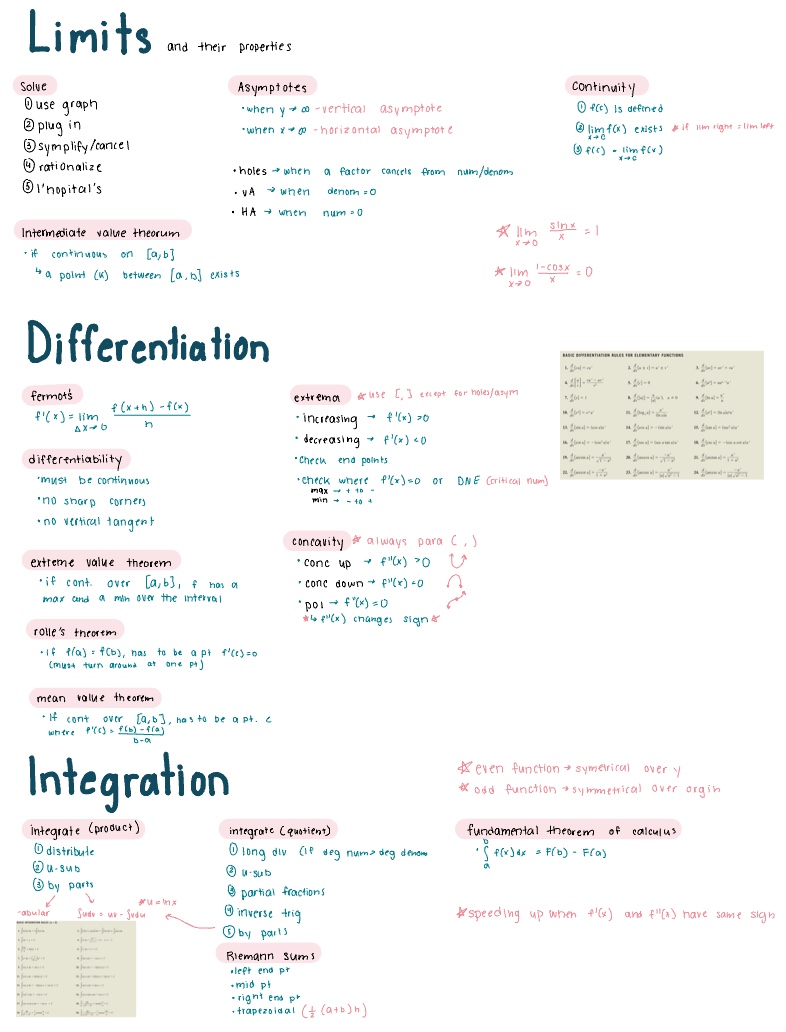 Limits and their properties
Solve
① use graph
② plug in
③ symplify/cancel
④ rationalize
⑤ l'hopital's
Asymptotes
• when y → ∞ - vertical asymptote
• when x → ∞ - horizontal asymptote
• holes → when a factor cancels from num/denom
• VA → when denom = 0
• HA → when num = 0
Continuity
① f(c) is defined
② lim f(x) exists * if lim right = lim left
x→c
③ f(c) = lim f(x)
x→c
Intermediate value theorum
• if continuous on [a,b]
↳ a point (k) between [a,b] exists
☆ lim sinx/x = 1
x→0
☆ lim 1-cosx/x = 0
x→0
Differentiation
fermat's
f'(x) = lim f(x+h) - f(x) / h
Δx→0
differentiability
• must be continuous
• no sharp corners
• no vertical tangent
extreme value theorem
• if cont. over [a,b], f has a
max and a min over the interval
rolle's theorem
• if f(a) = f(b), has to be a pt f'(c)=0
(must turn around at one pt)
mean value theorem
• If cont over [a,b], has to be a pt. c
where f'(c) = f(b) - f(a) / b-a
extrema * use [,] except for holes/asym
• increasing → f'(x) >0
• decreasing → f'(x) <0
• check end points
• check where f'(x)=0 or DNE (critical num)
max → + to -
min → - to +
concavity * always para (,)
• conc up → f"(x) >0
• conc down → f"(x) <0
• poi → f"(x) = 0
* ↳ f"(x) changes sign *
BASIC DIFFERENTIATION RULES FOR ELEMENTARY FUNCTIONS
Integration
☆ even function → symetrical over y
☆ odd function → symmetrical over orgin
integrate (product)
① distribute
② u-sub
③ by parts
*u = lnx
-abular ∫udv = uv - ∫vdu
integrate (quotient)
① long div (if deg num > deg denom
② u-sub
③ partial fractions
④ inverse trig
⑤ by parts
Riemann sums
• left end pt
• mid pt
• right end pt
• trapezoidal (½ (a+b)h)
fundamental theorem of calculus
• ∫ₐᵇ f(x)dx = F(b) - F(a)
*speeding up when f'(x) and f"(x) have same sign